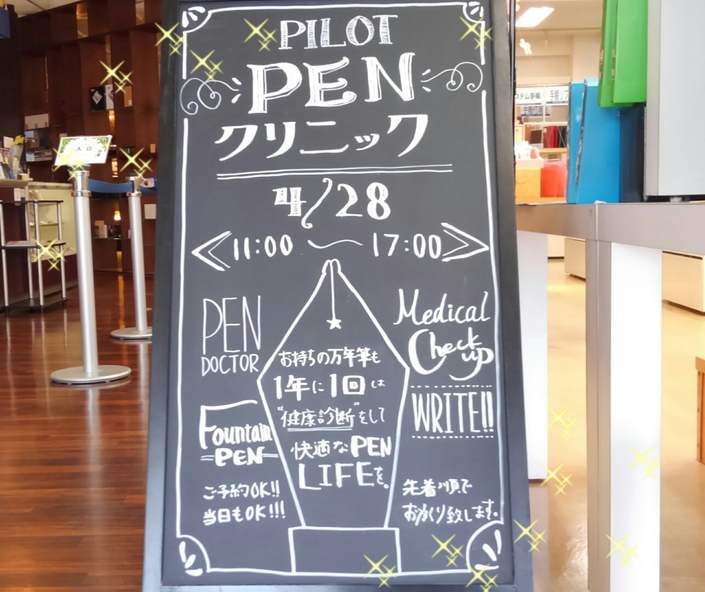 PILOT
PEN
クリニック
4/28
11:00 〜 17:00
PEN
DOCTOR
Medical
Check
up
お持ちの万年筆も
1年に1回は
"健康診断"をして
快適なPEN
LIFEを。
Fountain
PEN
WRITE!!
ご予約OK!!
当日もOK!!!
先着順で
おつくり致します。
入口